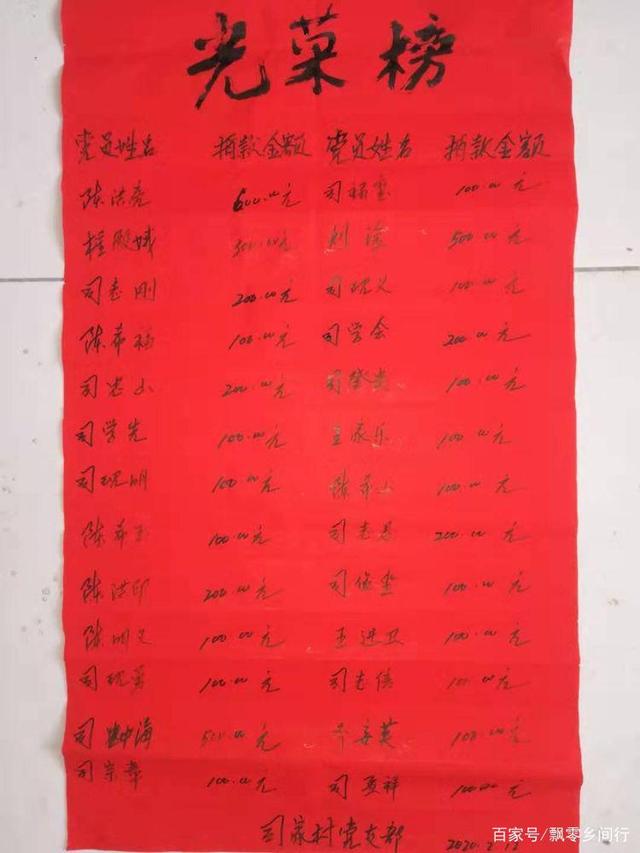 光荣榜
党员姓名 捐款金额 党员姓名 捐款金额
陈洪亮 600.00元 司福奎 100.00元
桂殿娥 300.00元 刘海 500.00元
司志刚 200.00元 司现义 100.00元
陈希福 100.00元 司学会 200.00元
司忠山 200.00元 司登贵 100.00元
司学先 100.00元 王家乐 100.00元
司现明 100.00元 陈希山 100.00元
陈希玉 100.00元 司志忠 200.00元
陈洪印 200.00元 司俊奎 100.00元
陈明义 100.00元 王进卫 100.00元
司现勇 100.00元 司志信 100.00元
司 海 500.00元 100.00元
司宗章 100.00元 司 祥 100.00元
司家村党支部 2020.2.
百家号/飘零乡间行